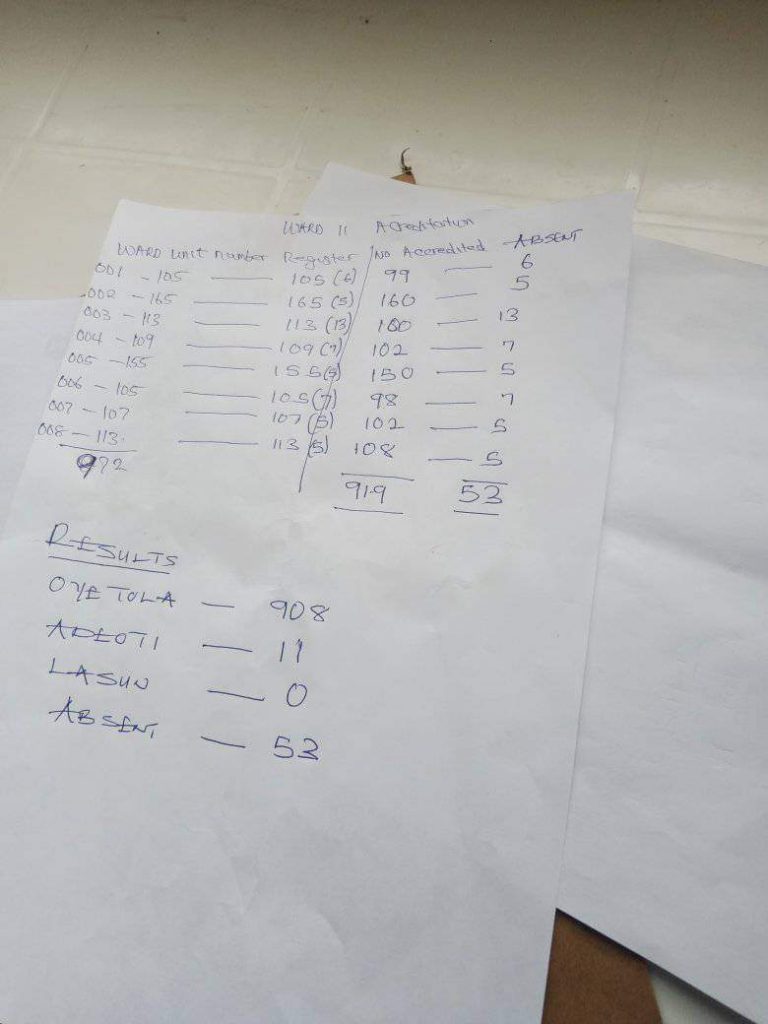 WARD 11 Accreditation
WARD Unit Number Register / NO Accredited ABSENT
001 - 105 — 105 (6) 99 — 6
002 - 165 — 165 (5) 160 — 5
003 - 113 — 113 (13) 100 — 13
004 - 109 — 109 (7) 102 — 7
005 - 155 — 155 (5) 150 — 5
006 - 105 — 105 (7) 98 — 7
007 - 107 — 107 (5) 102 — 5
008 - 113. — 113 (5) 108 — 5
972 919 53
RESULTS
OYETOLA — 908
ADEOTI — 11
LASUN — 0
ABSENT — 53